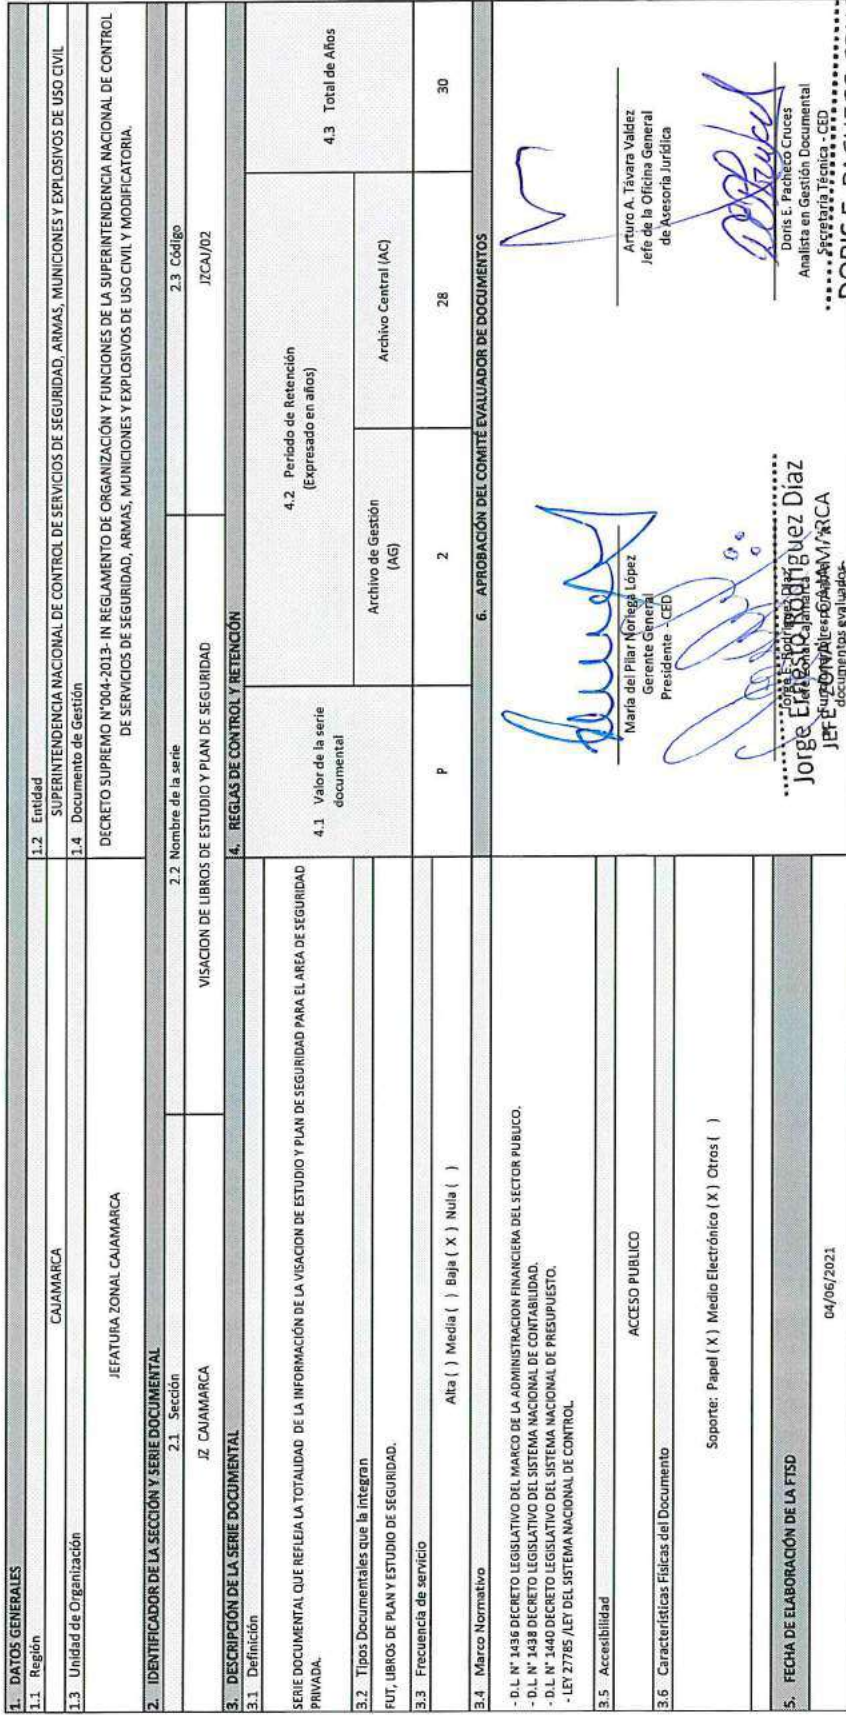 1. DATOS GENERALES
1.1 Región
1.2 Entidad
CAJAMARCA
SUPERINTENDENCIA NACIONAL DE CONTROL DE SERVICIOS DE SEGURIDAD, ARMAS, MUNICIONES Y EXPLOSIVOS DE USO CIVIL
1.3 Unidad de Organización
1.4 Documento de Gestión
JEFATURA ZONAL CAJAMARCA
DECRETO SUPREMO N°004-2013- IN REGLAMENTO DE ORGANIZACIÓN Y FUNCIONES DE LA SUPERINTENDENCIA NACIONAL DE CONTROL
DE SERVICIOS DE SEGURIDAD, ARMAS, MUNICIONES Y EXPLOSIVOS DE USO CIVIL Y MODIFICATORIA.
2. IDENTIFICADOR DE LA SECCIÓN Y SERIE DOCUMENTAL
2.1 Sección
2.2 Nombre de la serie
2.3 Código
JZ CAJAMARCA
VISACION DE LIBROS DE ESTUDIO Y PLAN DE SEGURIDAD
JZCAJ/02
3. DESCRIPCIÓN DE LA SERIE DOCUMENTAL
3.1 Definición
SERIE DOCUMENTAL QUE REFLEJA LA TOTALIDAD DE LA INFORMACIÓN DE LA VISACION DE ESTUDIO Y PLAN DE SEGURIDAD PARA EL AREA DE SEGURIDAD
PRIVADA.
3.2 Tipos Documentales que la integran
FUT, LIBROS DE PLAN Y ESTUDIO DE SEGURIDAD.
3.3 Frecuencia de servicio
Alta ( ) Media ( ) Baja ( X ) Nula ( )
3.4 Marco Normativo
- D.L N° 1436 DECRETO LEGISLATIVO DEL MARCO DE LA ADMINISTRACION FINANCIERA DEL SECTOR PUBLICO.
- D.L N° 1438 DECRETO LEGISLATIVO DEL SISTEMA NACIONAL DE CONTABILIDAD.
- D.L N° 1440 DECRETO LEGISLATIVO DEL SISTEMA NACIONAL DE PRESUPUESTO.
- LEY 27785 /LEY DEL SISTEMA NACIONAL DE CONTROL.
3.5 Accesibilidad
ACCESO PUBLICO
3.6 Características Físicas del Documento
Soporte: Papel ( X ) Medio Electrónico ( X ) Otros ( )
5. FECHA DE ELABORACIÓN DE LA FTSD
04/06/2021
4. REGLAS DE CONTROL Y RETENCIÓN
4.1 Valor de la serie
documental
4.2 Periodo de Retención
(Expresado en años)
4.3 Total de Años
Archivo de Gestión
(AG)
Archivo Central (AC)
P
2
28
30
6. APROBACIÓN DEL COMITÉ EVALUADOR DE DOCUMENTOS
María del Pilar Noriega López
Gerente General
Presidente - CED
Arturo A. Távara Valdez
Jefe de la Oficina General
de Asesoría Jurídica
Jorge Ernesto Rodríguez Díaz
JEFE ZONAL - CAJAMARCA
documentos evaluados
Doris E. Pacheco Cruces
Analista en Gestión Documental
Secretaría Técnica - CED